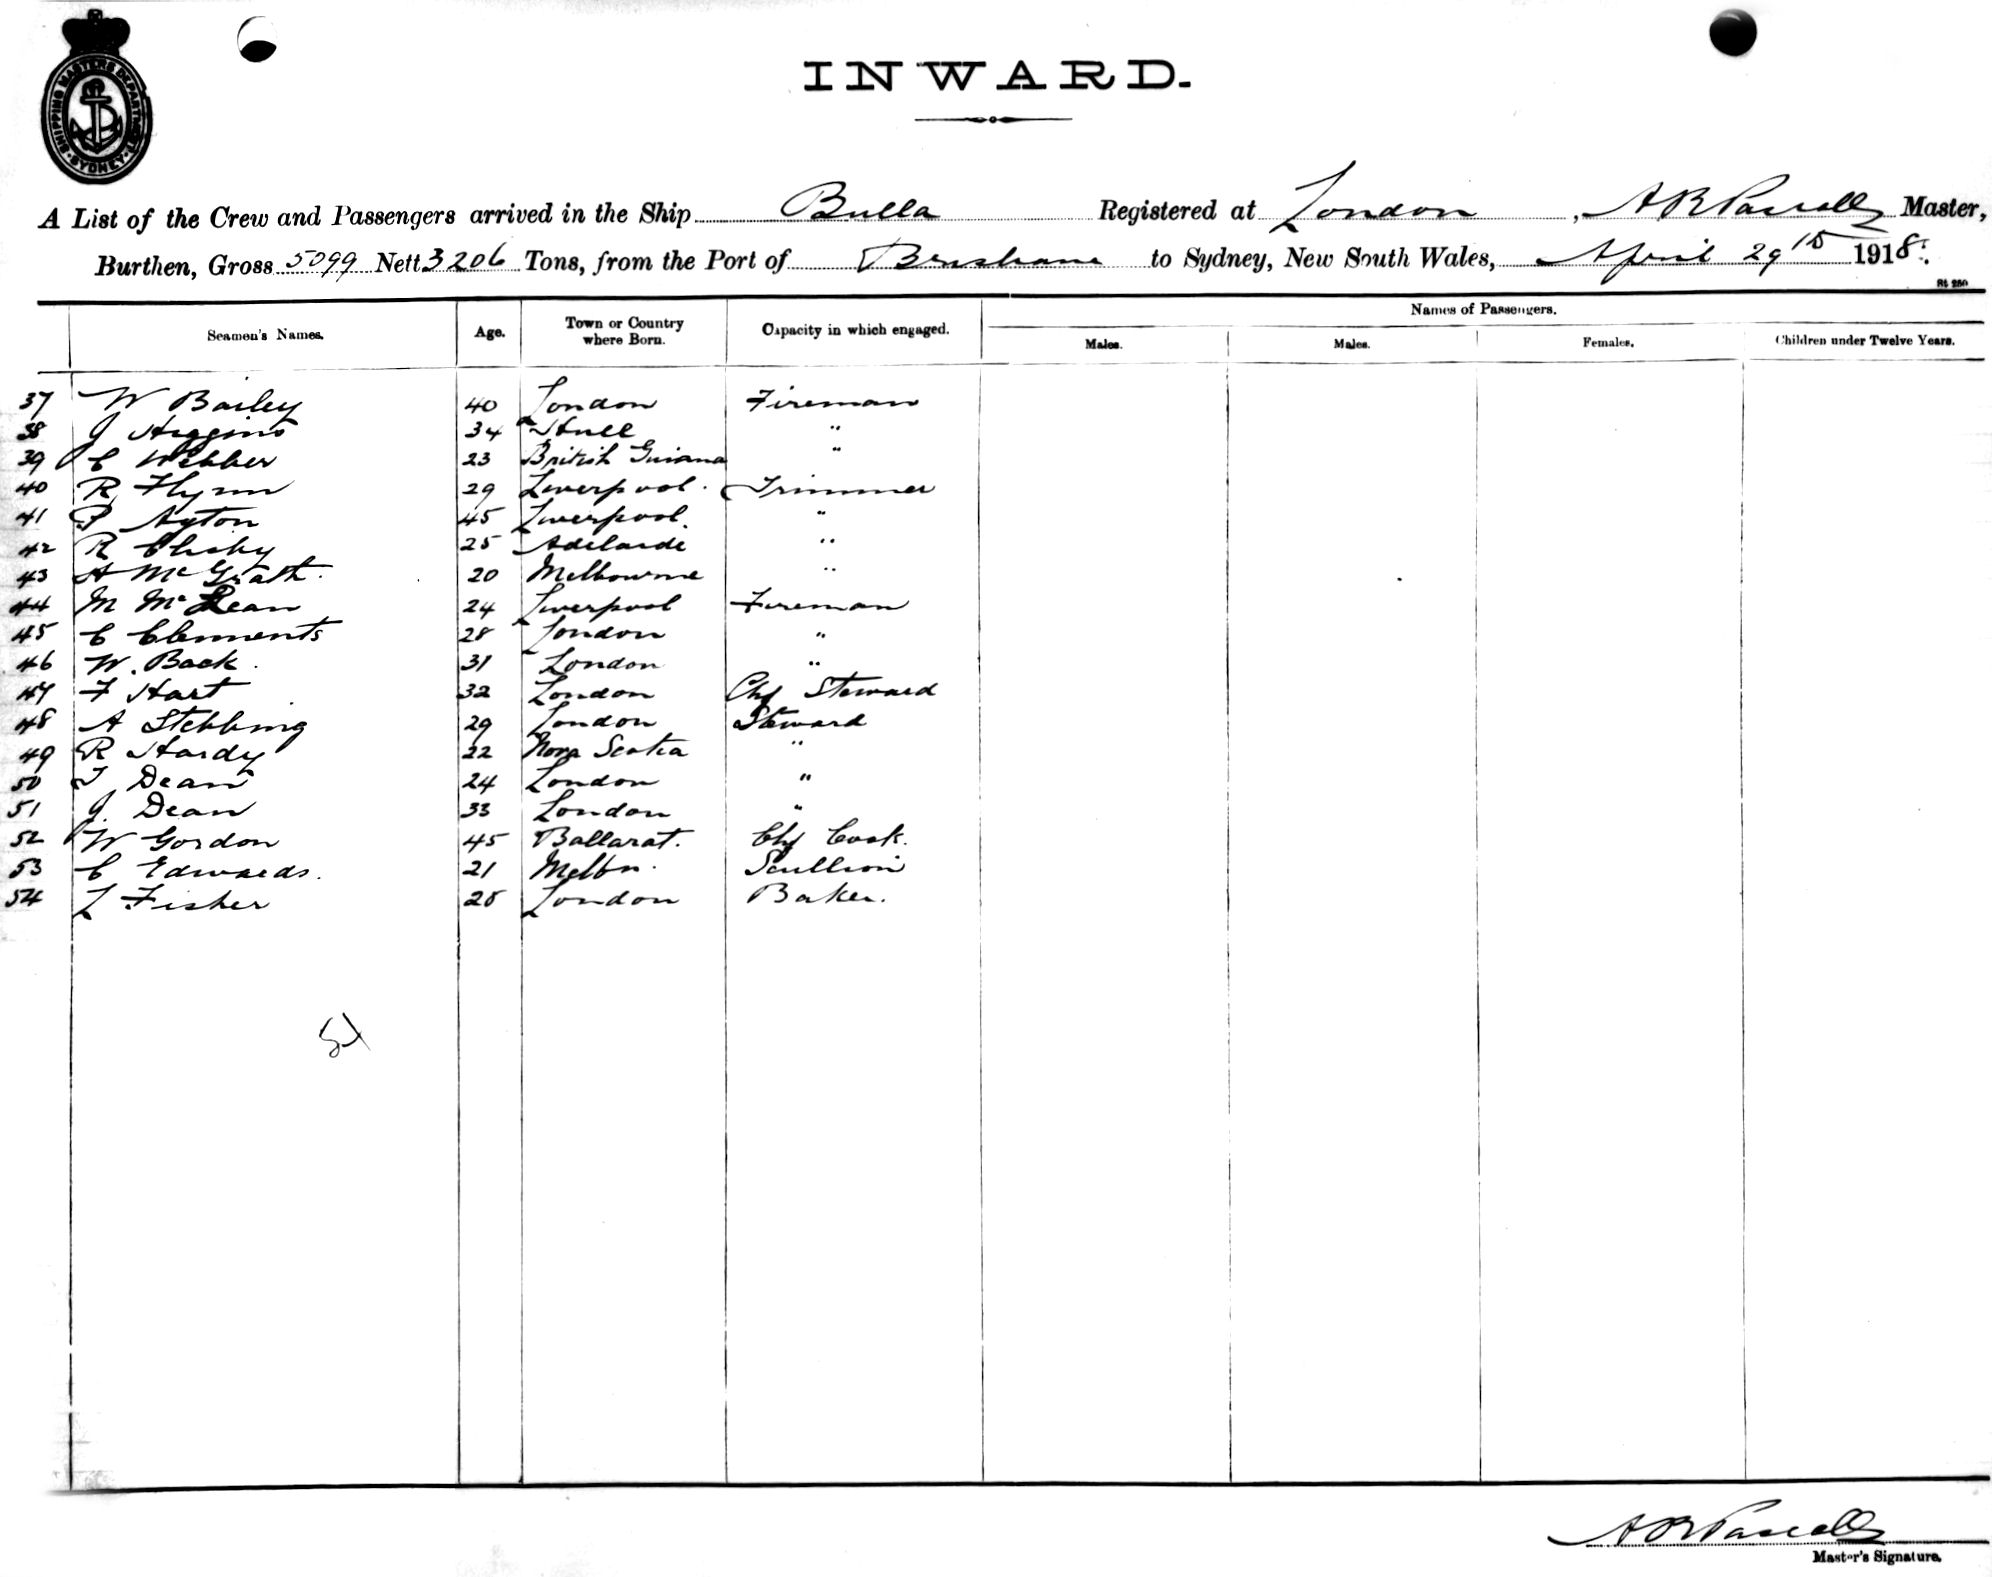 SHIPPING MASTERS DEPARTMENT SYDNEY
INWARD.
A List of the Crew and Passengers arrived in the Ship Bulla Registered at London, A R Pascall Master,
Burthen, Gross 5099 Nett 3206 Tons, from the Port of Brisbane to Sydney, New South Wales, April 29th 1918.
Seamen's Names. Age. Town or Country where Born. Capacity in which engaged. Names of Passengers.
Males. Males. Females. Children under Twelve Years.
37 W Bailey 40 London Fireman
38 J Higgins 34 Hull "
39 C Webber 23 British Guiana "
40 R Flynn 29 Liverpool. Trimmer
41 P Ayton 45 Liverpool. "
42 R Clisby 25 Adelaide "
43 A McGrath. 20 Melbourne "
44 M McLean 24 Liverpool Fireman
45 C Clements 28 London "
46 W. Back. 31 London "
47 F Hart 32 London Chf Steward
48 A Stebbing 29 London Steward
49 R Hardy 22 Nova Scotia "
50 T Dean 24 London "
51 J. Dean 33 London "
52 W Gordon 45 Ballarat. Chf Cook.
53 C Edwards. 21 Melbn. Scullion
54 L Fisher 25 London Baker.
54
A R Pascall
Master's Signature.